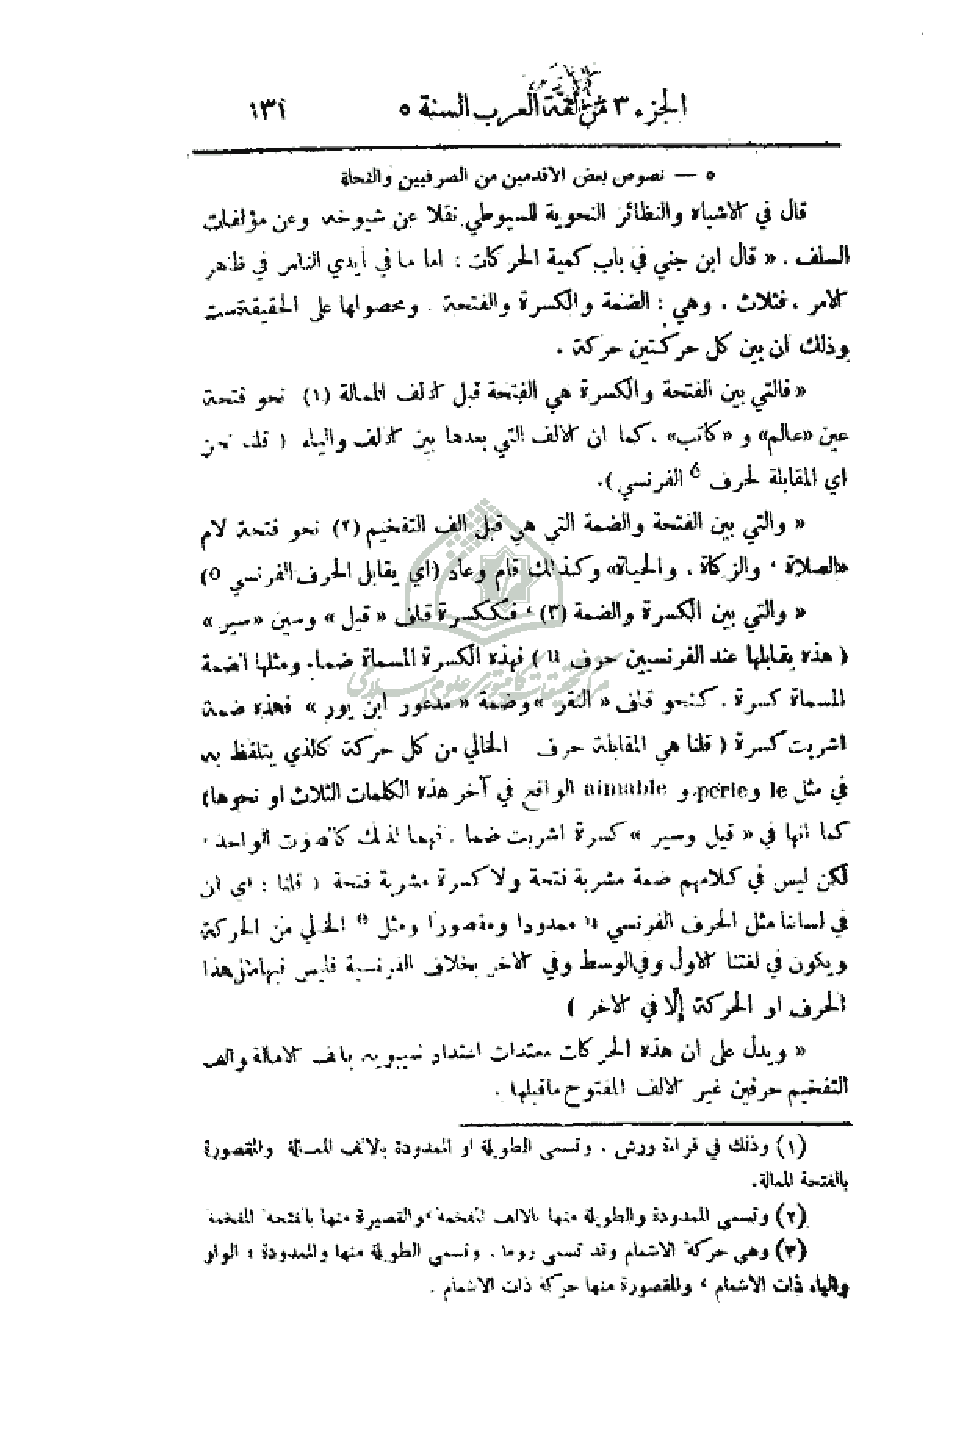 الجزء ٣ من لغة العرب السنة ٥ ١٣١
٥ — نصوص بعض الاقدمين من الصرفيين والنحاة
قال في الاشباه والنظائر النحوية للسيوطي نقلا عن شيوخه وعن مؤلفات
السلف . « قال ابن جني في باب كمية الحركات : اما ما في أيدي الناس في ظاهر
الامر . فثلاث . وهي : الضمة والكسرة والفتحة . ومحصولها على الحقيقة ست
وذلك ان بين كل حركتين حركة .
« فالتي بين الفتحة والكسرة هي الفتحة قبل الالف الممالة (١) نحو فتحة
عين «عالم» و «كاتب» . كما ان الالف التي بعدها بين الالف والياء ( قلنا نحن
اي المقابلة لحرف é الفرنسي ).
« والتي بين الفتحة والضمة التي هي قبل الف التفخيم (٢) نحو فتحة لام
«الصلاة ، والزكاة . والحياة» وكذلك قام وعاد (اي يقابل الحرف الفرنسي o)
« والتي بين الكسرة والضمة (٣) ، فككسرة قاف « قيل » وسين «سير»
( هذه يقابلها عند الفرنسيين حرف u ) فهذه الكسرة المسماة ضما. ومثلها الضمة
المسماة كسرة . كنحو قاف « النقر » وضمة « مذعور ابن بور » فهذه ضمة
اشربت كسرة ( قلنا هي المقابلة حرف الخالي من كل حركة كالذي يتلفظ به
في مثل le و perle و aimable الواقع في آخر هذه الكلمات الثلاث او نحوها)
كما انها في « قيل وسير » كسرة اشربت ضما . فهما لذلك كالصوت الواحد ،
لكن ليس في كلامهم ضمة مشربة فتحة ولا كسرة مشربة فتحة ( قلنا : اي ان
في لساننا مثل الحرف الفرنسي u ممدودا ومقصورا ومثل e الخالي من الحركة
ويكون في لغتنا الاول وفي الوسط وفي الاخر بخلاف الفرنسية فليس فيها مثل هذا
الحرف او الحركة إلّا في الاخر )
« ويدل على ان هذه الحركات معتدات اعتداد سيبويه بالف الامالة والف
التفخيم حرفين غير الالف المفتوح ما قبلها .
(١) وذلك في قراءة ورش . وتسمى الطويلة او الممدودة بالالف الممالة والمقصورة
بالفتحة الممالة.
(٢) وتسمى الممدودة والطويلة منها بالالف المفخمة ، والقصيرة منها بالفتحة المفخمة
(٣) وهي حركة الاشمام وقد تسمى روما . وتسمى الطويلة منها والممدودة : الواو
والياء ذات الاشمام ، والمقصورة منها حركة ذات الاشمام .